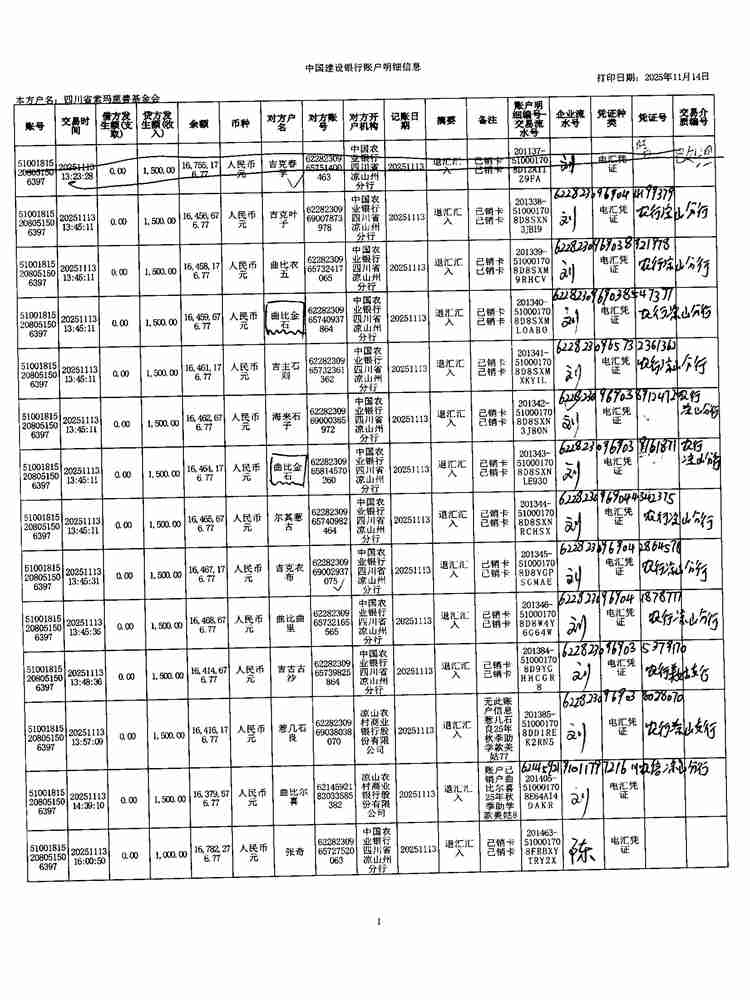 中国建设银行账户明细信息
打印日期：2025年11月14日
本方户名：四川省索玛慈善基金会
账号 交易时间 借方发生额(支取) 贷方发生额(收入) 余额 币种 对方户名 对方账号 对方开户机构 记账日期 摘要 备注 账户明细编号-交易流水号 企业流水号 凭证种类 凭证号 交易介质编号
51001815208051506397 20251113 13:23:28 0.00 1,500.00 人民币元 中国农业银行四川省凉山州分行 20251113 退汇汇入 已销卡 已销卡 刘 电汇凭证
51001815208051506397 20251113 13:45:11 0.00 1,500.00 16,456,676.77 人民币元 吉克叶子 6228230969007873978 中国农业银行四川省凉山州分行 20251113 退汇汇入 已销卡 已销卡 201338-510001708D8SXN3JB19 刘 电汇凭证 农行凉山分行
51001815208051506397 20251113 13:45:11 0.00 1,500.00 16,458,176.77 人民币元 曲比农五 6228230965732417065 中国农业银行四川省凉山州分行 20251113 退汇汇入 已销卡 已销卡 201339-510001708D8SXM9RHCV 刘 电汇凭证 农行凉山分行
51001815208051506397 20251113 13:45:11 0.00 1,500.00 16,459,676.77 人民币元 曲比金石 6228230965740937864 中国农业银行四川省凉山州分行 20251113 退汇汇入 已销卡 已销卡 201340-510001708D8SXMLOABO 刘 电汇凭证 农行凉山分行
51001815208051506397 20251113 13:45:11 0.00 1,500.00 16,461,176.77 人民币元 吉主石则 6228230965732361362 中国农业银行四川省凉山州分行 20251113 退汇汇入 已销卡 已销卡 201341-510001708D8SXMXKYIL 刘 电汇凭证 农行凉山分行
51001815208051506397 20251113 13:45:11 0.00 1,500.00 16,462,676.77 人民币元 海来石子 6228230969000385972 中国农业银行四川省凉山州分行 20251113 退汇汇入 已销卡 已销卡 201342-510001708D8SXN3JB0N 刘 电汇凭证 农行凉山分行
51001815208051506397 20251113 13:45:11 0.00 1,500.00 16,464,176.77 人民币元 曲比金石 6228230965814570260 中国农业银行四川省凉山州分行 20251113 退汇汇入 已销卡 已销卡 201343-510001708D8SXNLE930 刘 电汇凭证 农行凉山分行
51001815208051506397 20251113 13:45:11 0.00 1,500.00 16,465,676.77 人民币元 尔其惹古 6228230965740982464 中国农业银行四川省凉山州分行 20251113 退汇汇入 已销卡 已销卡 201344-510001708D8SXNRCHSX 刘 电汇凭证 农行凉山分行
51001815208051506397 20251113 13:45:31 0.00 1,500.00 16,467,176.77 人民币元 吉克衣布 6228230969002937075 中国农业银行四川省凉山州分行 20251113 退汇汇入 已销卡 已销卡 201345-510001708D8VGPSGMAE 刘 电汇凭证 农行凉山分行
51001815208051506397 20251113 13:45:36 0.00 1,500.00 16,468,676.77 人民币元 曲比曲里 6228230965732165565 中国农业银行四川省凉山州分行 20251113 退汇汇入 已销卡 已销卡 201346-510001708D8W4Y6G64W 刘 电汇凭证 农行凉山分行
51001815208051506397 20251113 13:48:36 0.00 1,500.00 16,414,676.77 人民币元 吉古古沙 6228230965739825864 中国农业银行四川省凉山州分行 20251113 退汇汇入 已销卡 已销卡 201384-510001708D9YGHHCGR8 刘 电汇凭证
51001815208051506397 20251113 13:57:09 0.00 1,500.00 16,416,176.77 人民币元 惹几石良 6228230969038038070 凉山农村商业银行股份有限公司 20251113 退汇汇入 无此账户信息惹几石良25年秋季助学款美姑77 201385-510001708DD1REK2RN5 刘 电汇凭证
51001815208051506397 20251113 14:39:10 0.00 1,500.00 16,379,576.77 人民币元 曲比尔喜 6214592182033585382 凉山农村商业银行股份有限公司 20251113 退汇汇入 账户已销户曲比尔喜25年秋季助学款美姑8 201405-510001708E64A14DAKR 刘 电汇凭证
51001815208051506397 20251113 16:00:50 0.00 1,000.00 16,782,276.77 人民币元 张奇 6228230965727520063 中国农业银行四川省凉山州分行 20251113 退汇汇入 已销卡 已销卡 201463-510001708FBBXYTRY2X 陈 电汇凭证
1